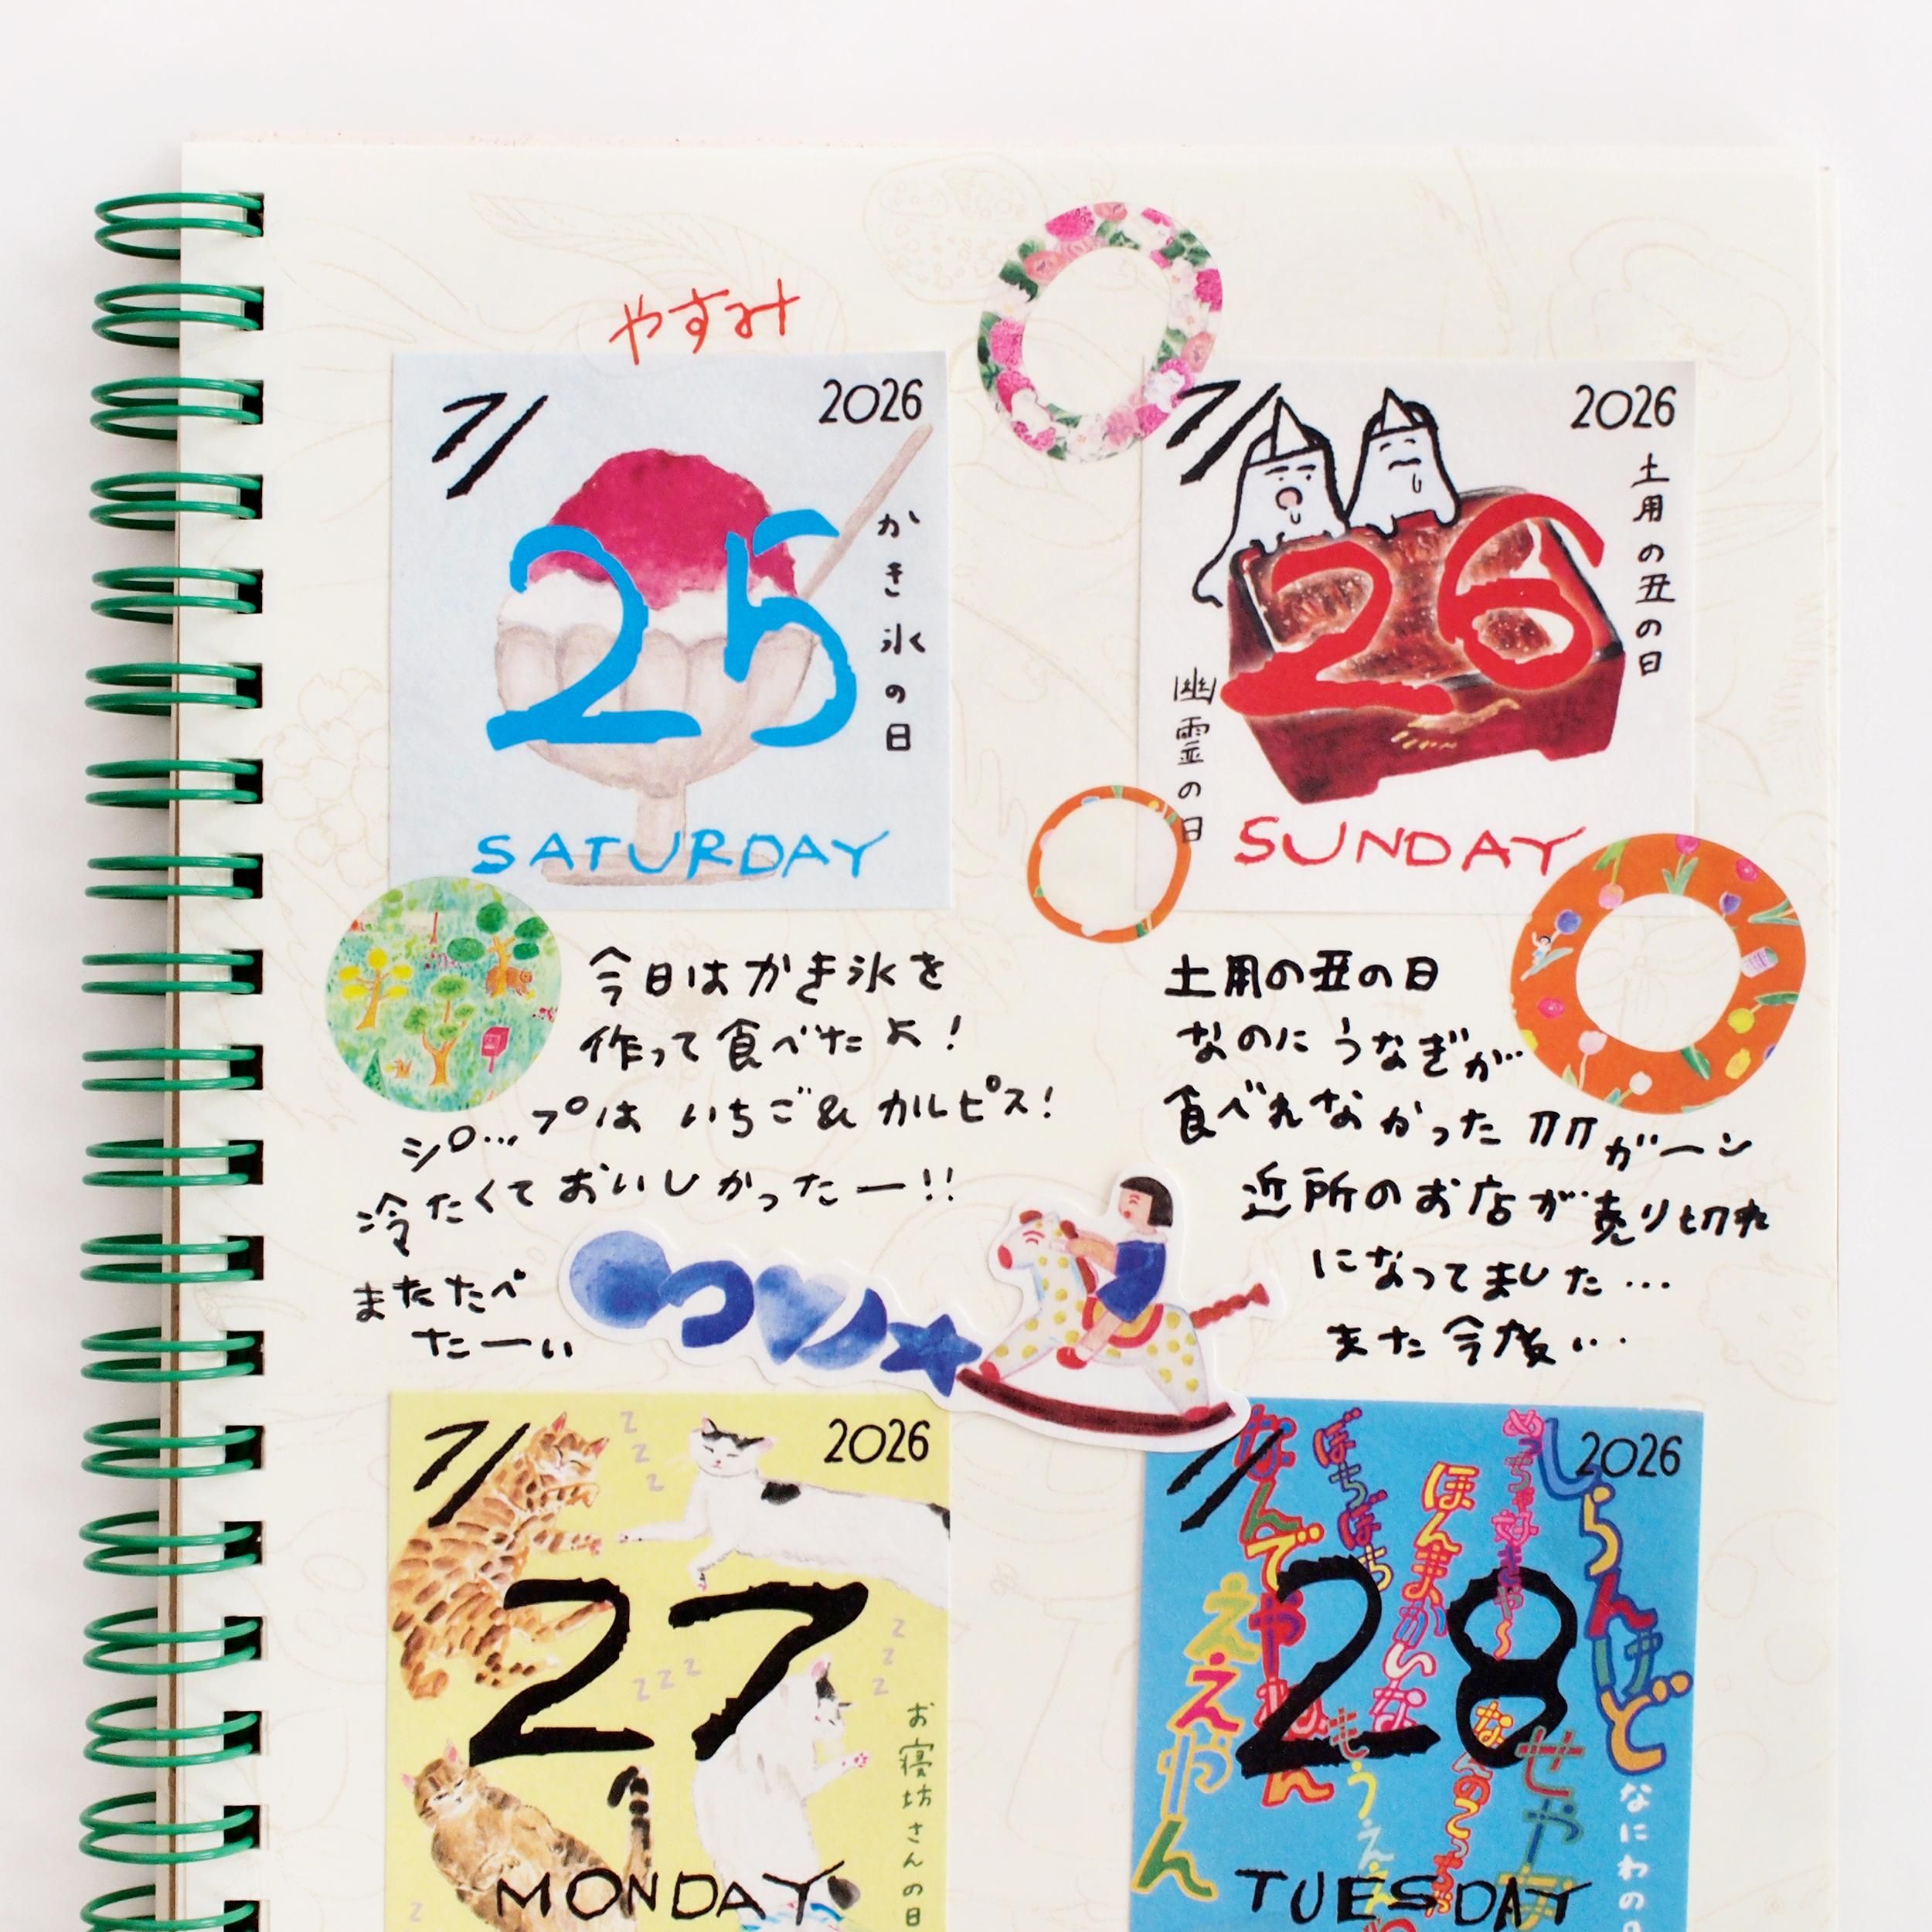 やすみ
7/
2026
25
かき氷の日
SATURDAY
今日はかき氷を
作って食べたよ!
シロップは いちご& カルピス!
冷たくておいしかったー!!
またたべ
たーい
7/
2026
26
土用の丑の日
幽霊の日
SUNDAY
土用の丑の日
なのに うなぎが
食べれなかった ガーン
近所のお店が売り切れ
になってました…
また今度…
7/
2026
z z z
27
z z z
z z z
お寝坊さんの日
MONDAY
z
7/
2026
28
なんでやねん
ぼちぼち
ほんまかいな
めっちゃ好きやへ
しらんけど
ええやん
もうええ
なんのこっちゃ
せやな
なにわの日
TUESDAY